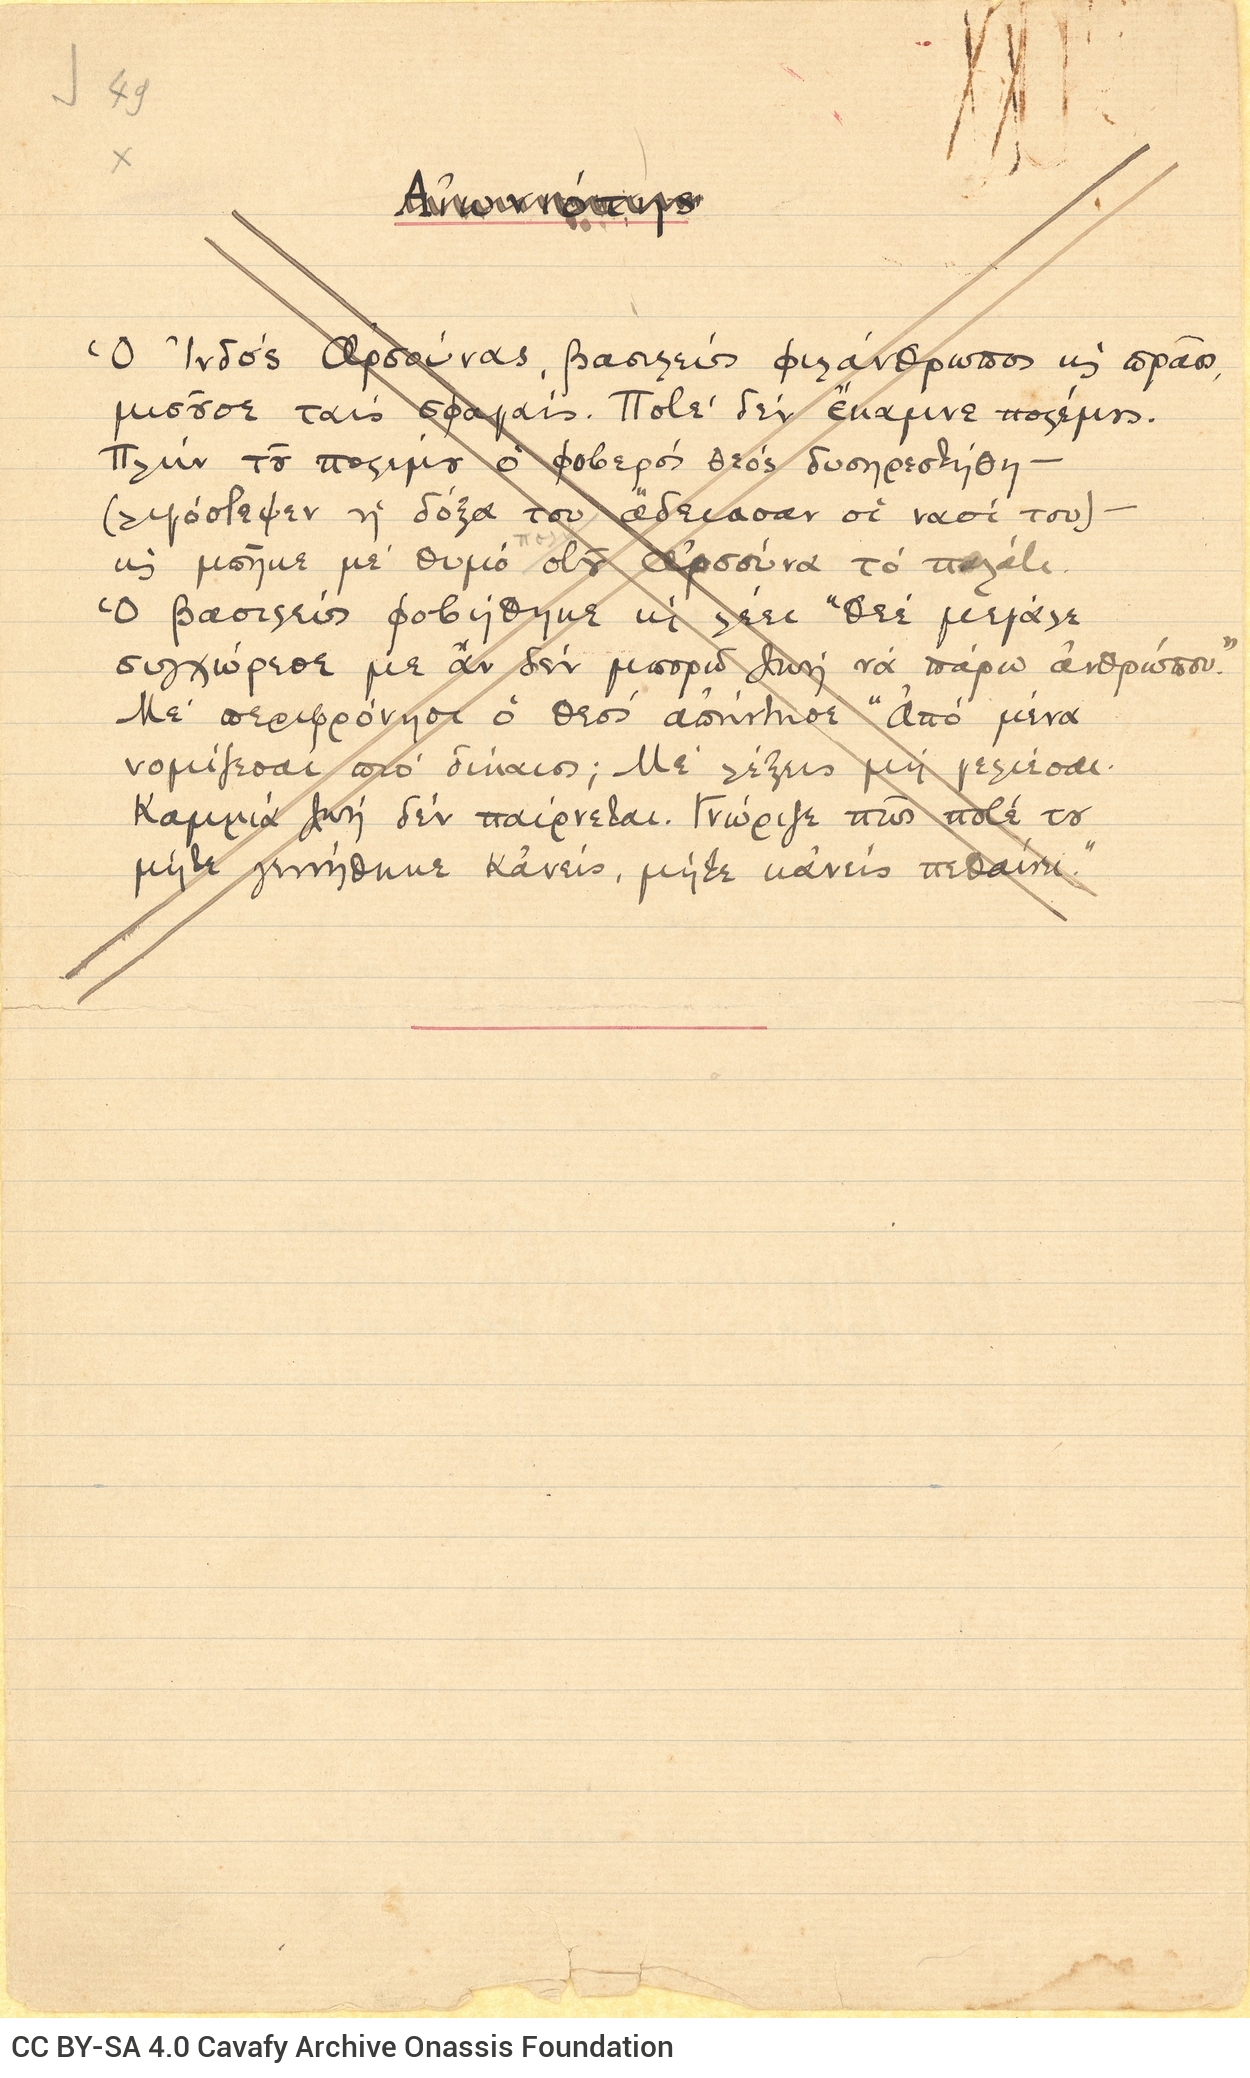 49
x
Αἰωνιότης
Ὁ Ἰνδός Ἀρσούνας, βασιλεύς φιλάνθρωπος κ᾽ πρᾶος,
μισοῦσε ταίς σφαγαίς. Ποτέ δέν ἔκαμνε πολέμους.
Πλήν τοῦ πολέμου ὁ φοβερός θεός δυσηρεστήθη —
(λιγόστεψεν ἡ δόξα του ἄδειασαν οἱ ναοί του) —
κ᾽ μπῆκε μέ θυμό πολύ στοῦ Ἀρσούνα τό παλάτι.
Ὁ βασιλεύς φοβήθηκε κ᾽ λέει “Θεέ μεγάλε
συγχώρεσε με ἄν δέν μπορῶ ζωή νά πάρω ἀνθρώπου.”
Μέ περιφρόνησι ὁ θεός ἀπήντησε “Ἀπό μένα
νομίζεσαι πιό δίκαιος; Μέ λέξεις μή γελιέσαι.
Καμμιά ζωή δέν παίρνεται. Γνώριζε πῶς ποτέ του
μήτε γεννήθηκε κἀνείς, μήτε κἀνείς πεθαίνει.”
CC BY-SA 4.0 Cavafy Archive Onassis Foundation